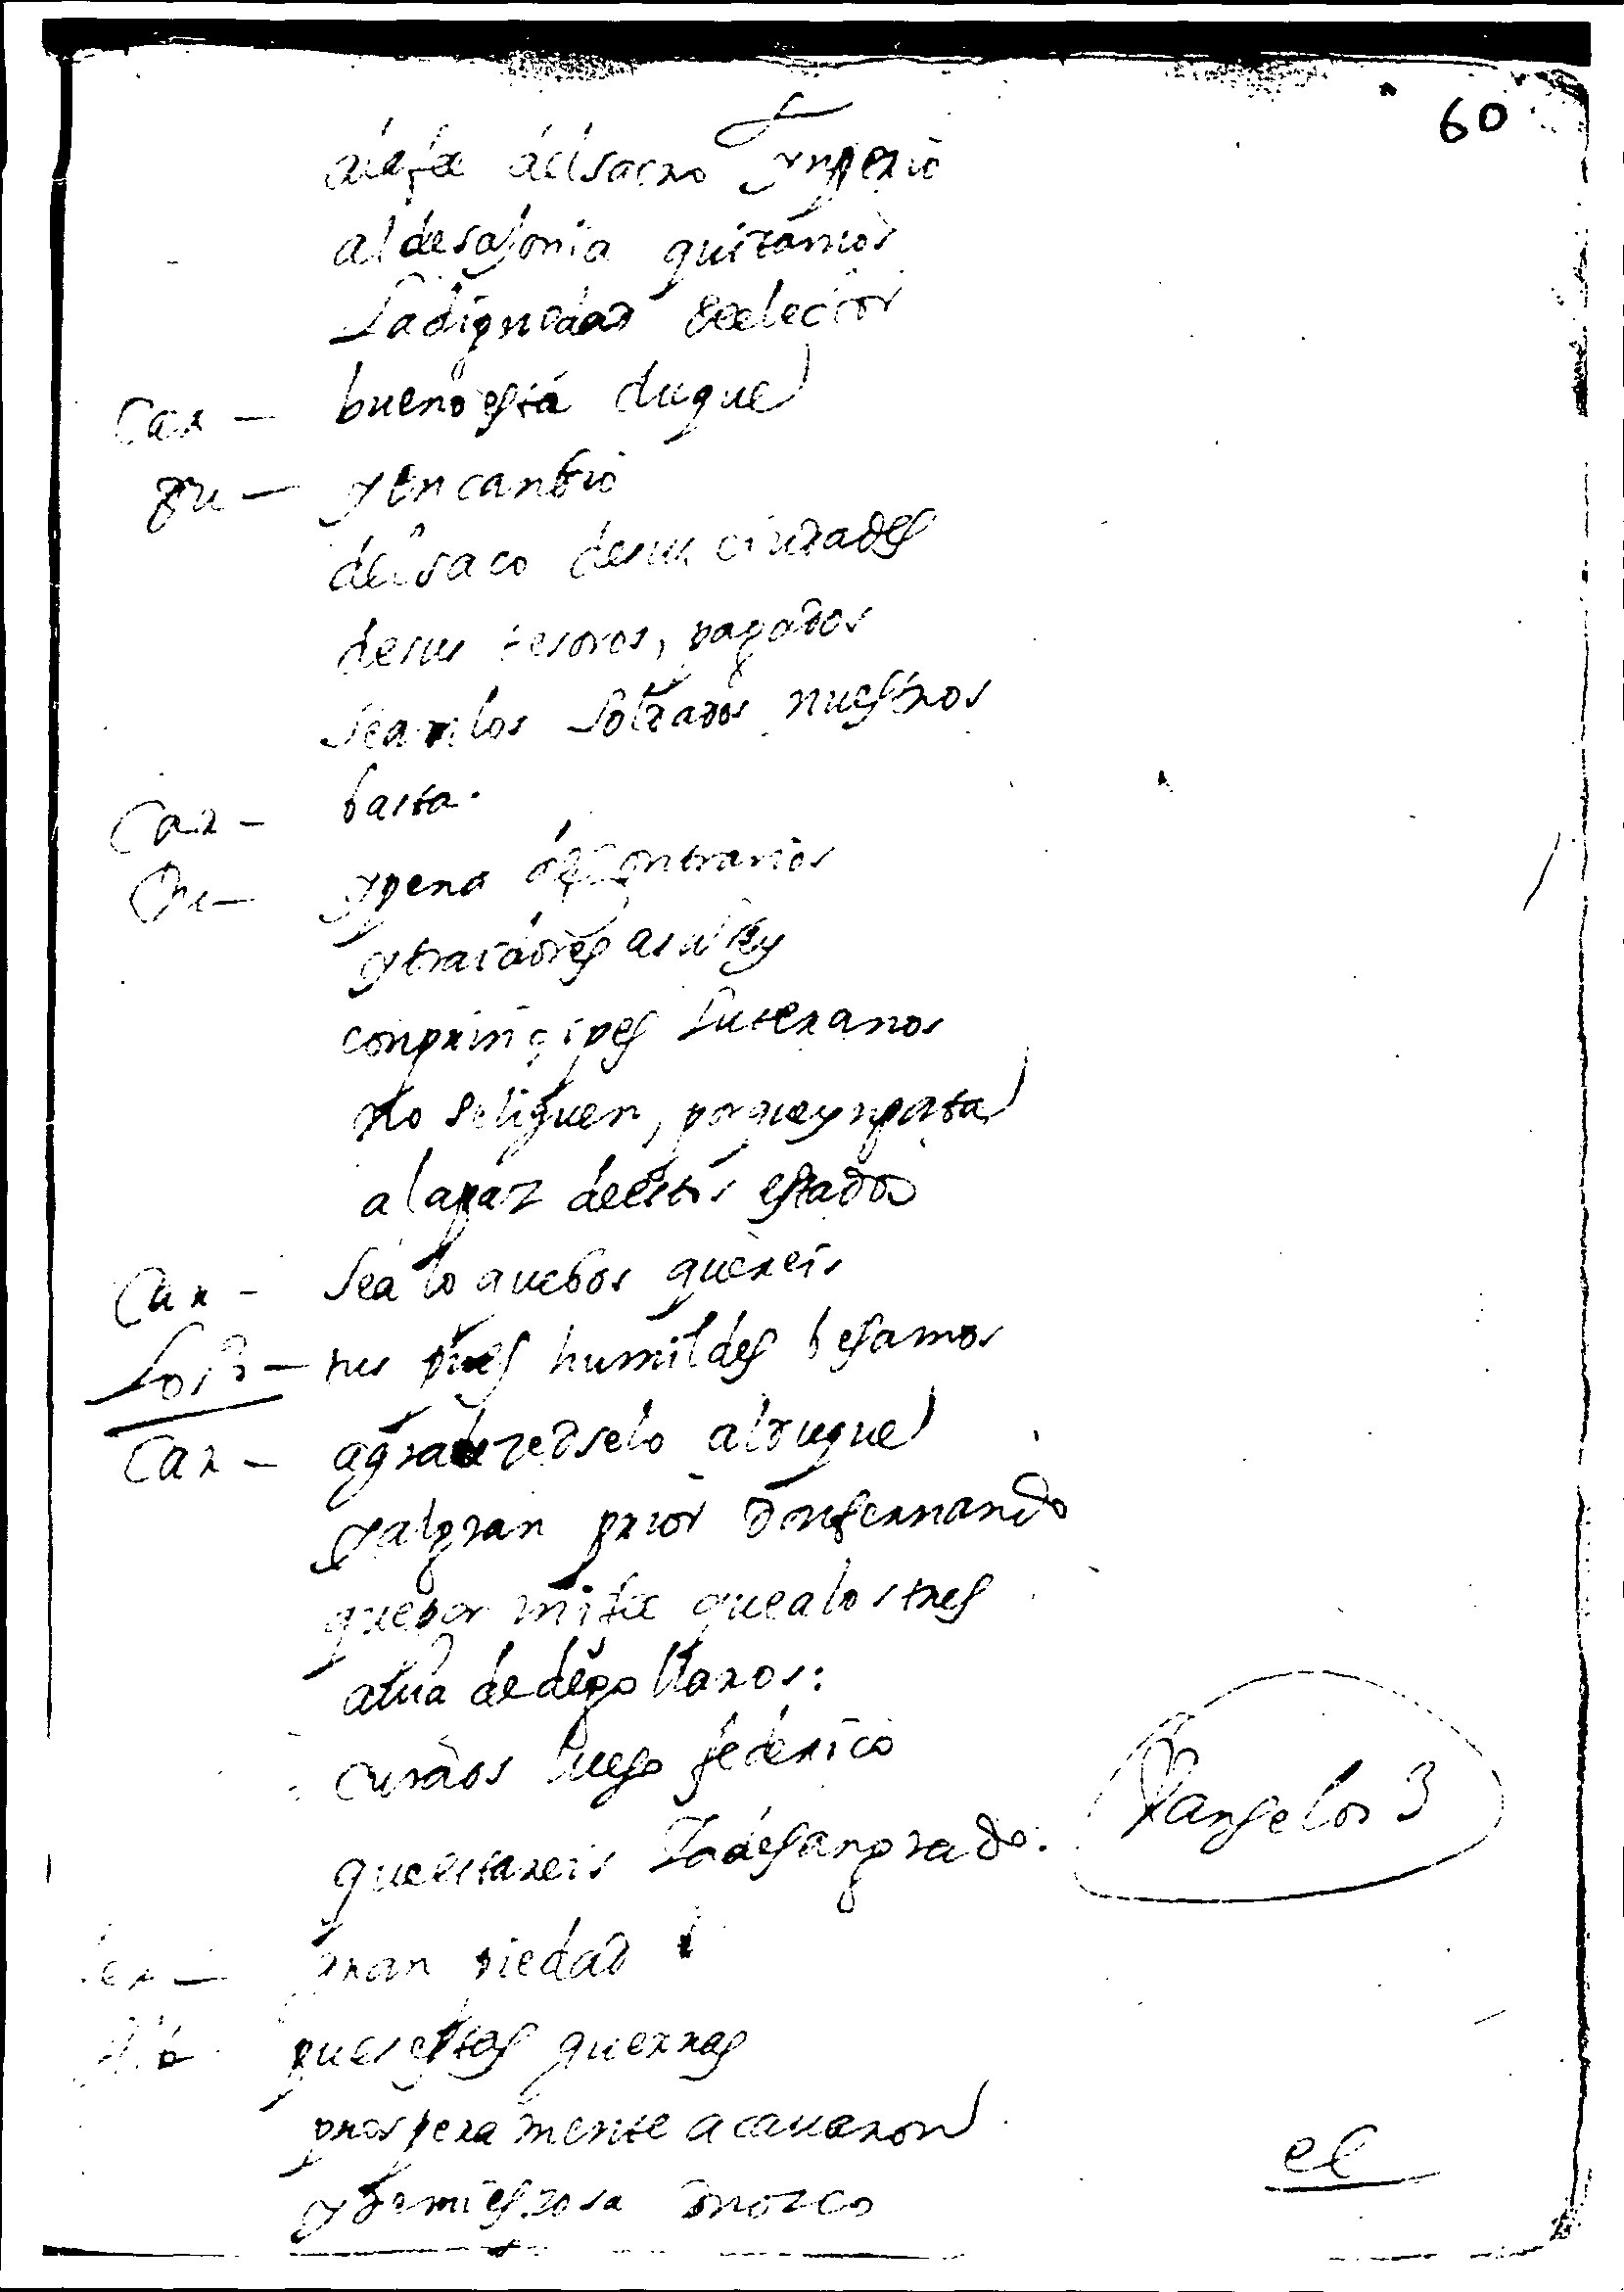 60
a la fe del sacro ynperio
al de sajonia quitamos
La dignidad de elector
Car — bueno está duque
Du — y En canbio
del saco de sus ciudades
de sus tesoros, pagados
sean los Soldados nuestros
Car — basta.
Du — y pena de contrarios
y traidores a su Rey
con prinçipes Luteranos
no se liguen, porque ynporta
a la paz de estos estados
Car — Sea lo que bos quereis
Los 3 — tus pies humildes besamos
Car — agradezedselo al duque
y al gran prior don fernando
que por mi fe que a los tres
abia de degollaros:
curaos luego federico
que estareis desangrado.
Vanse los 3
gran piedad
pues estas guerras
prosperamente acauaron
y
el